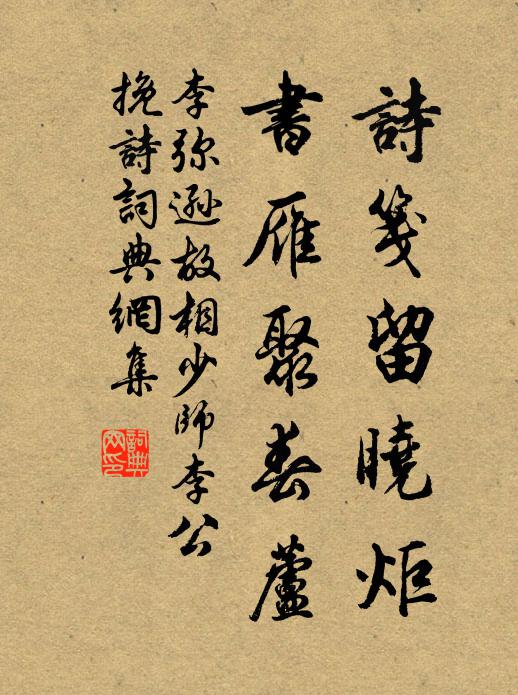 詩箋留曉炬
書雁聚春蘆
李弥遜故相少師李公
挽詩詞典網集
詞典網印